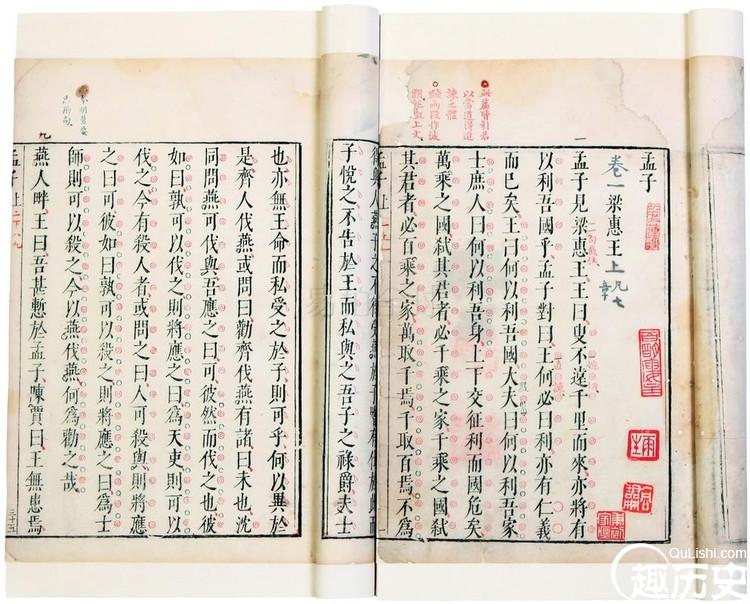 以當道得進
諫之體
孟子
卷一梁惠王上
孟子見梁惠王王曰叟不遠千里而來亦將有
以利吾國乎孟子對曰王何必曰利亦有仁義
而已矣王曰何以利吾國大夫曰何以利吾家
士庶人曰何以利吾身上下交征利而國危矣
萬乘之國弒其君者必千乘之家千乘之國弒
其君者必百乘之家萬取千焉千取百焉不為
孟子 上
子悅之不告於王而私與之吾子之祿爵夫士
也亦無王命而私受之於子則可乎何以異於
是齊人伐燕或問曰勸齊伐燕有諸曰未也沈
同問燕可伐與吾應之曰可彼然而伐之也彼
如曰孰可以伐之則將應之曰為天吏則可以
伐之今有殺人者或問之曰人可殺與則將應
之曰可彼如曰孰可以殺之則將應之曰為士
師則可以殺之今以燕伐燕何為勸之哉
燕人畔王曰吾甚慙於孟子陳賈曰王無患焉
孟子 上
三十五
QuLishi.com
趣历史